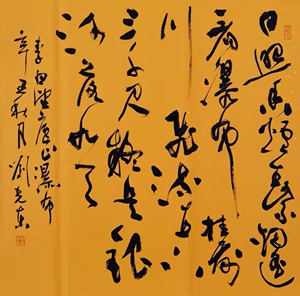 日照香炉生紫烟遥
看瀑布挂前
川飞流直下
三千尺疑是银
河落九天
李白望庐山瀑布
辛丑秋月刘